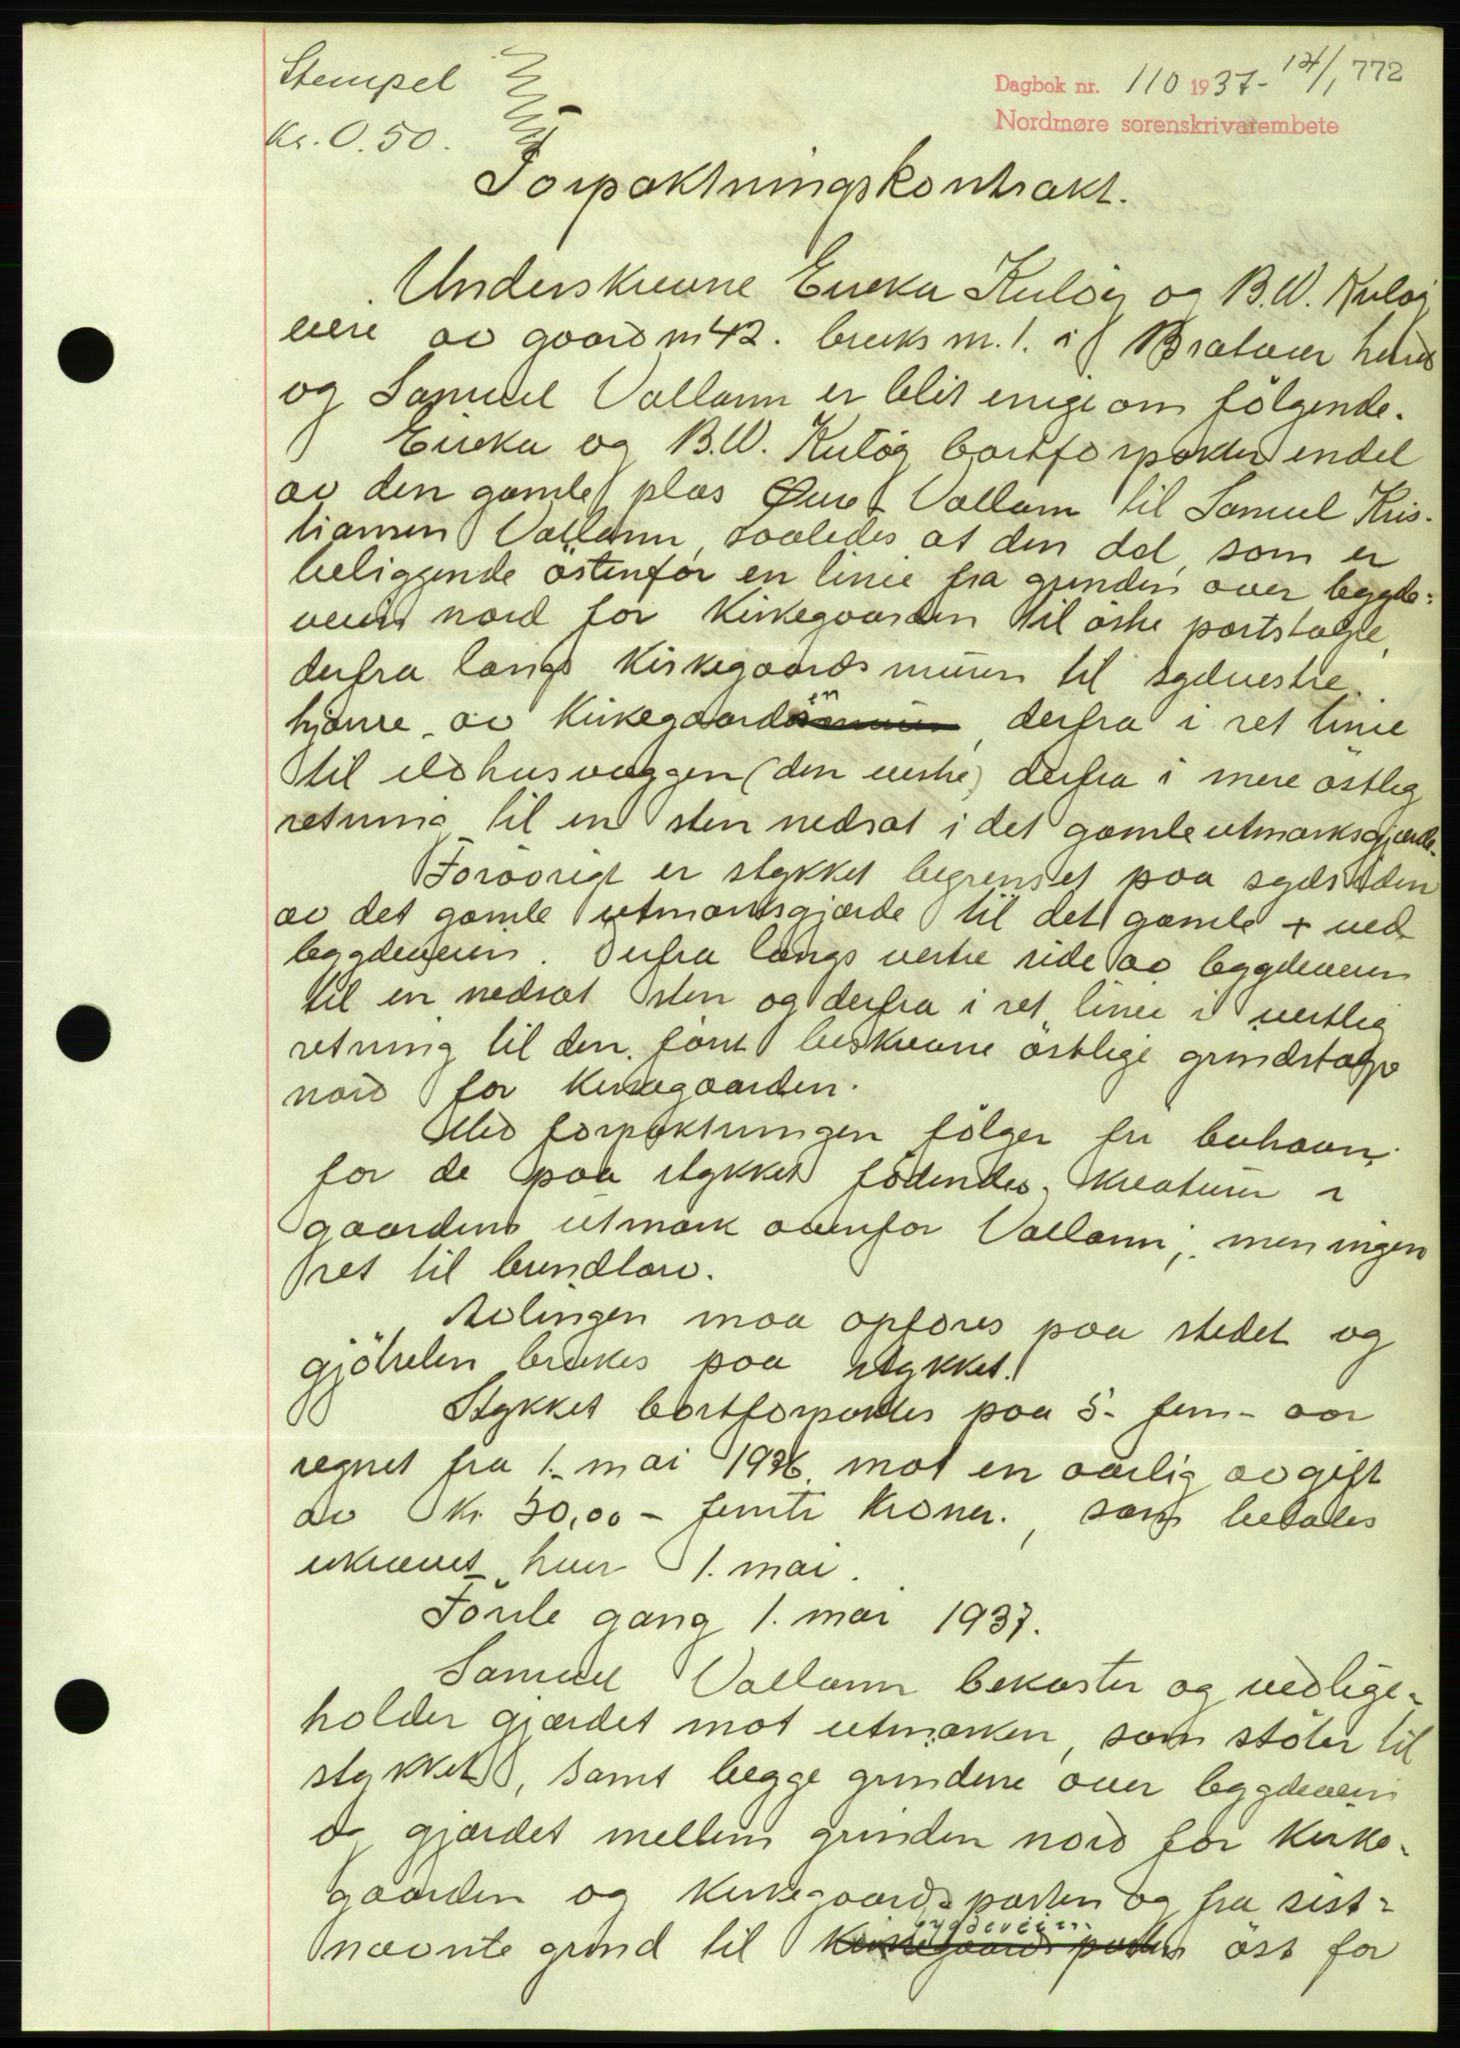 Stempel
Kr. 0.50.
Dagbok nr. 110 1937 - 12/1 772
Nordmøre sorenskrivarembete
Forpaktningskontrakt.
Underskrevne Eirika Kuløy og B.W. Kuløy
eiere av gaard nr 42. bruks nr. 1. i Brattvær herred
og Samuel Vallann er blit enige om følgende.
Eirika og B.W. Kuløy bortforpakter endel
av den gamle plas Øvre Vallann til Samuel Kris-
tiansen Vallann, saaledes at den del, som er
beliggende östenfor en linie fra grinden over bygde-
veien nord for Kirkegaarden til østre portstolpe,
derfra langs Kirkegaardsmuren til sydvestre
hjørne av Kirkegaarden, derfra i ret linie
til ildhusveggen (den vestre) derfra i mere østlig
retning til en sten nedsat i det gamle utmarksgjærde.
Forövrigt er stykket begrenset paa sydsiden
av det gamle utmarksgjærde til det gamle + ved
bygdeveien. Derfra langs vestre side av bygdeveien
til en nedsat sten og derfra i ret linie i vestlig
retning til den først beskrevne østlige grindstolpe
nord for Kirkegaarden.
Med forpaktningen følger fri buhavn
for de paa stykket födendes kreaturer i
gaardens utmark ovenfor Vallann, men ingen
ret til brendtorv.
Avlingen maa opfôres paa stedet og
gjödselen brukes paa stykket.
Stykket bortforpaktes paa 5 - fem - aar
regnet fra 1. mai 1936 mot en aarlig avgift
av Kr 50,00 - femti Kroner, som betales
ukrævet hver 1. mai.
Første gang 1. mai 1937.
Samuel Vallann bekoster og vedlige-
holder gjærdet mot utmarken, som støter til
stykket, samt begge grindene over bygdeveien
og gjærdet mellem grinden nord for Kirke-
gaarden og Kirkegaardsporten og fra sist-
nævnte grind til
bygdeveien
Kirkegaardsporten öst for